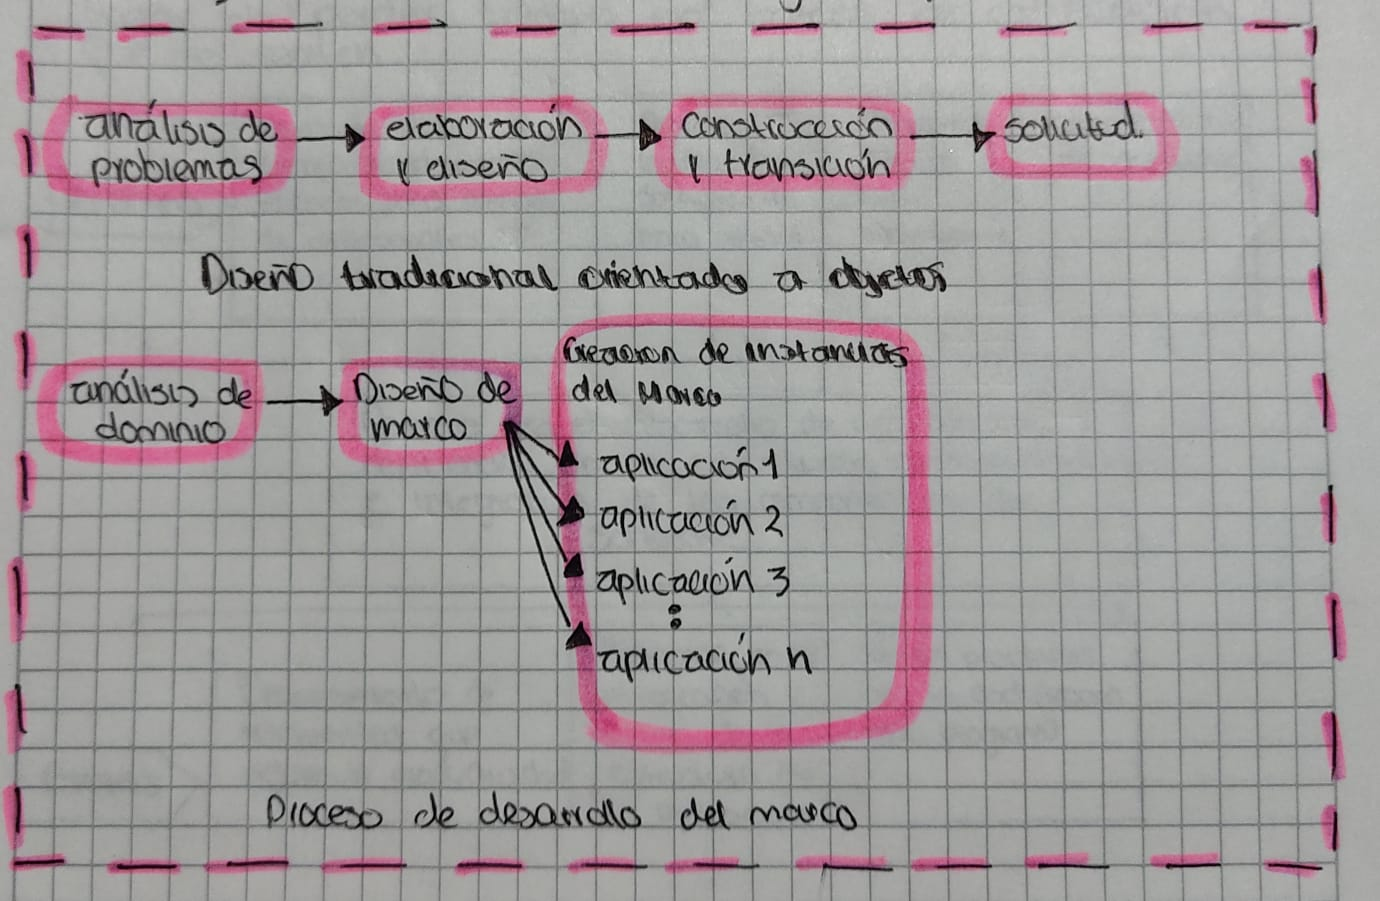 análisis de
problemas
elaboración
y diseño
construcción
y transición
solicitud.
Diseño tradicional orientado a objetos
análisis de
dominio
Diseño de
marco
Creacion de instancias
del Marco
aplicación 1
aplicación 2
aplicación 3
aplicación n
Proceso de desarrollo del marco